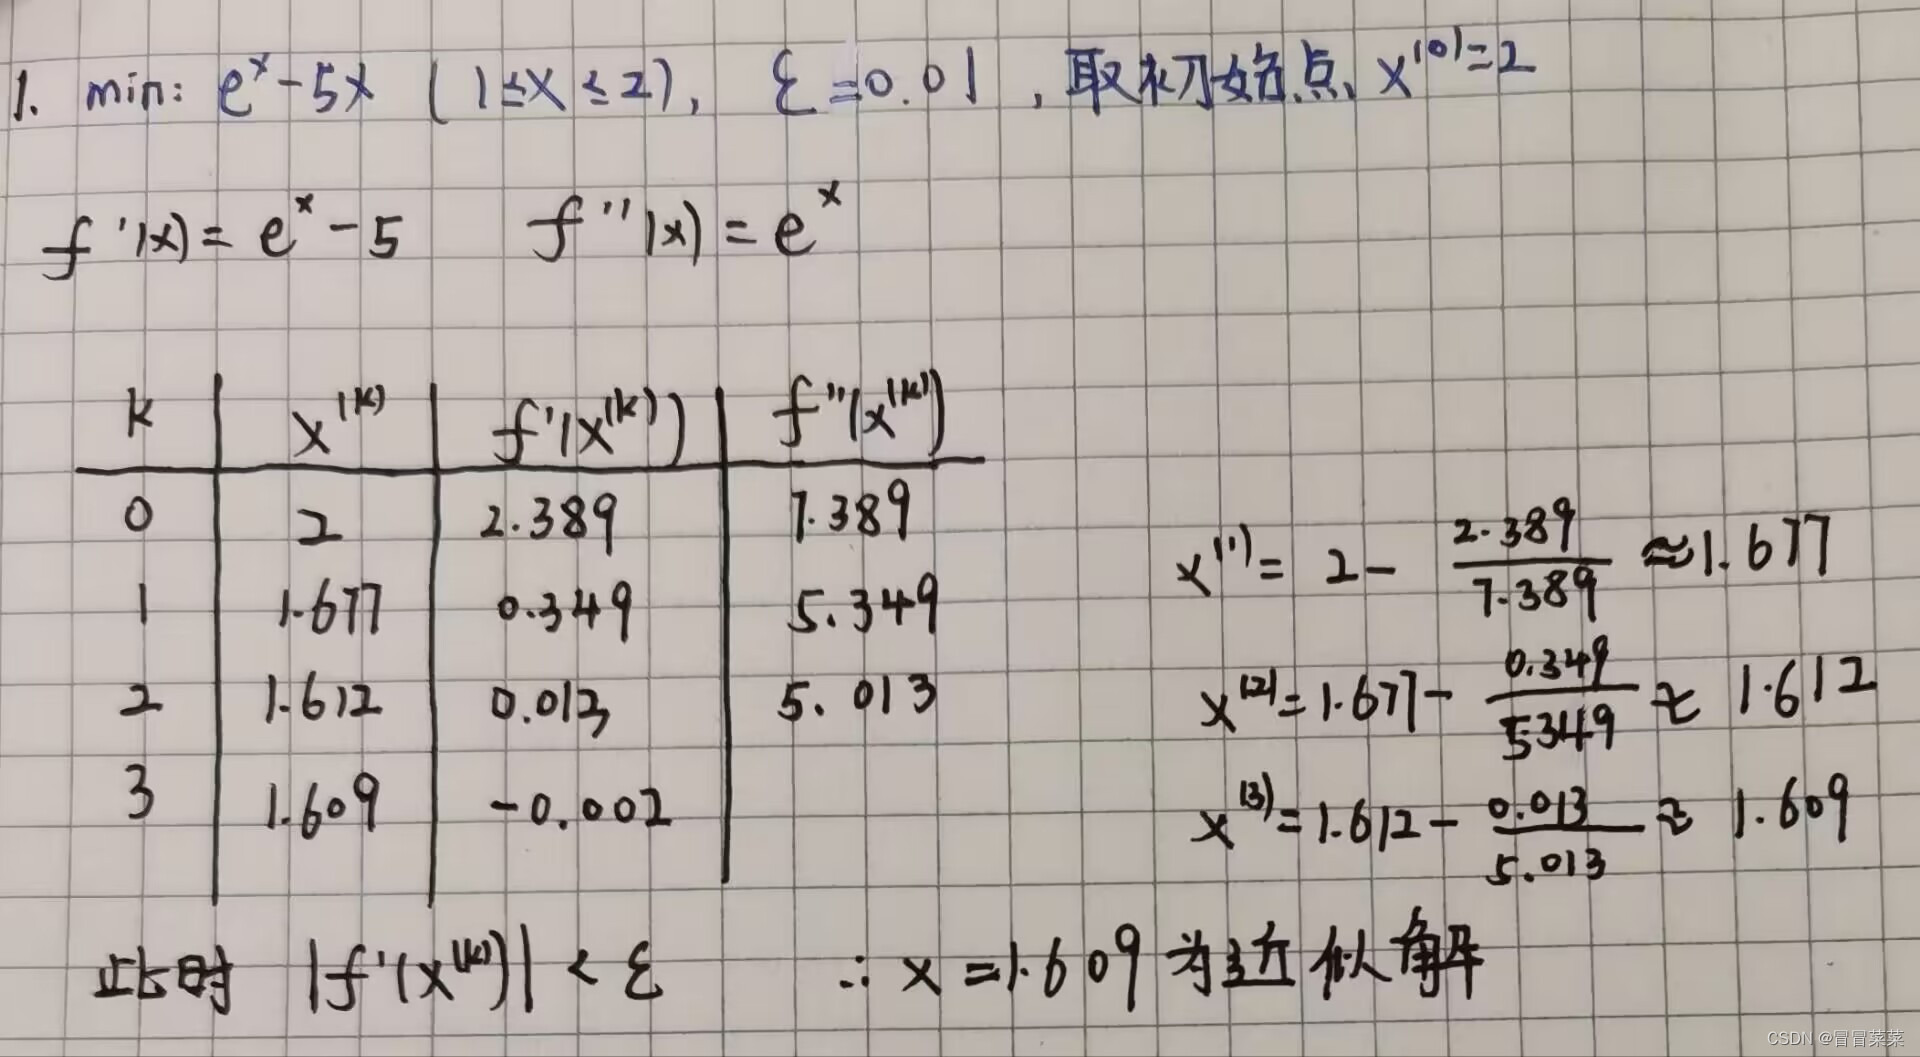 1. min: e^x-5x (1≤x≤2), ε=0.01, 取初始点 x^(0)=2
f'(x)=e^x-5 f''(x)=e^x
k x^(k) f'(x^(k)) f''(x^(k))
0 2 2.389 7.389
1 1.677 0.349 5.349
2 1.612 0.013 5.013
3 1.609 -0.002
x^(1)= 2- 2.389/7.389 ≈1.677
x^(2)=1.677- 0.349/5.349 ≈ 1.612
x^(3)=1.612- 0.013/5.013 ≈ 1.609
此时 |f'(x^(k))| < ε ∴ x=1.609为近似解
CSDN @冒冒菜菜